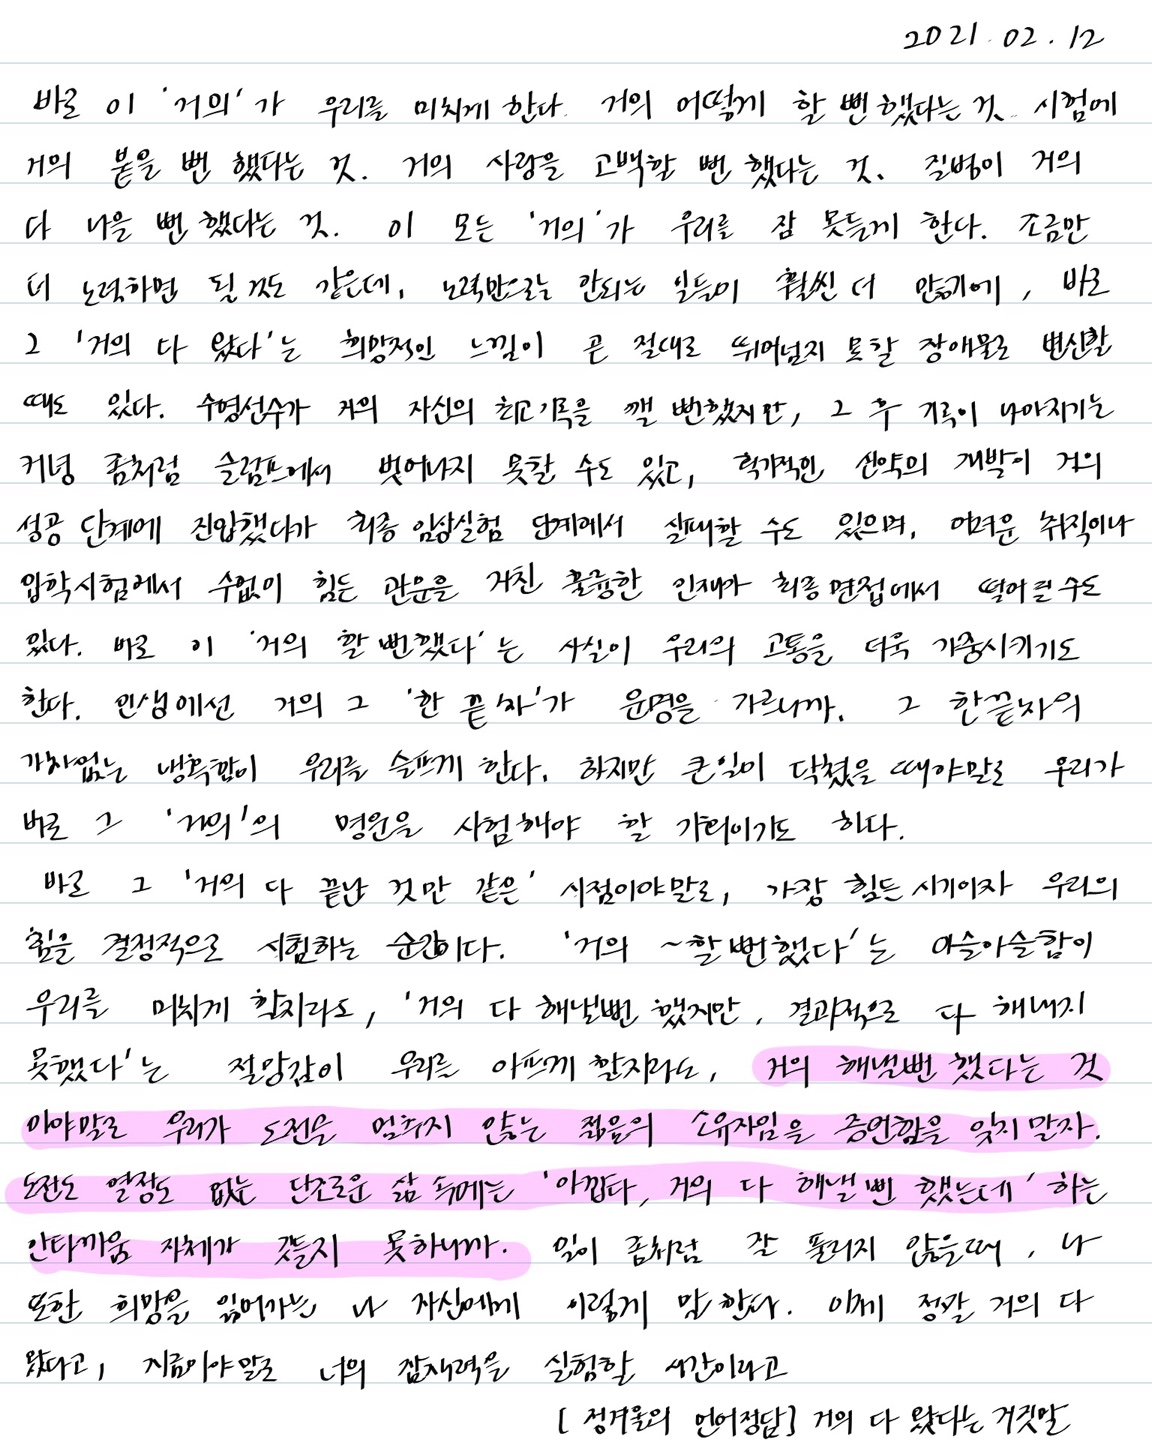 2021.02.12
바로 이 '거의'가 우리를 미치게 한다. 거의 어떻게 할 뻔 했다는 것. 시험에
거의 붙을 뻔 했다는 것. 거의 사랑을 고백할 뻔 했다는 것. 질병이 거의
다 나을 뻔 했다는 것. 이 모든 '거의'가 우리를 잠 못들게 한다. 조금만
더 노력하면 될 것도 같은데, 노력만으로는 안되는 일들이 훨씬 더 많기에, 바로
그 '거의 다 왔다'는 희망적인 느낌이 곧 절대로 뛰어넘지 못할 장애물로 변신할
때도 있다. 수영선수가 거의 자신의 최고기록을 깰 뻔했지만, 그 후 기록이 나아지기는
커녕 좀처럼 슬럼프에서 벗어나지 못할 수도 있고, 획기적인 신약의 개발이 거의
성공 단계에 진입했다가 최종 임상실험 단계에서 실패할 수도 있으며, 어려운 취직이나
입학시험에서 수없이 힘든 관문을 거친 훌륭한 인재가 최종면접에서 떨어질 수도
있다. 바로 이 '거의 할 뻔했다'는 사실이 우리의 고통을 더욱 가중시키기도
한다. 인생에선 거의 그 '한 끝 차'가 운명을 가르니까. 그 한끝차의
가차없는 냉혹함이 우리를 슬프게 한다. 하지만 큰일이 닥쳤을 때야말로 우리가
바로 그 '거의'의 명원을 시험해야 할 가리이기도 하다.
바로 그 '거의 다 끝난 것만 같은' 시점이야말로, 가장 힘든 시기이자 우리의
힘을 결정적으로 시험하는 순간이다. '거의 ~할뻔했다'는 아슬아슬함이
우리를 미치게 할지라도, '거의 다 해낼뻔 했지만, 결과적으로 다 해내지
못했다'는 절망감이 우리를 아프게 할지라도, 거의 해낼뻔 했다는 것
이야말로 우리가 도전을 멈추지 않는 젊음의 소유자임을 증언함을 잊지 말자.
도전도 열정도 없는 단조로운 삶 속에는 '아깝다, 거의 다 해낼 뻔 했는데' 하는
안타까움 자체가 깃들지 못하니까. 일이 좀처럼 잘 풀리지 않을때, 나
또한 희망을 잃어가는 나 자신에게 이렇게 말한다. 이제 정말 거의 다
왔다고, 지금이야말로 너의 잠재력을 실험할 시간이라고
[정여울의 언어정담] 거의 다 왔다는 거짓말